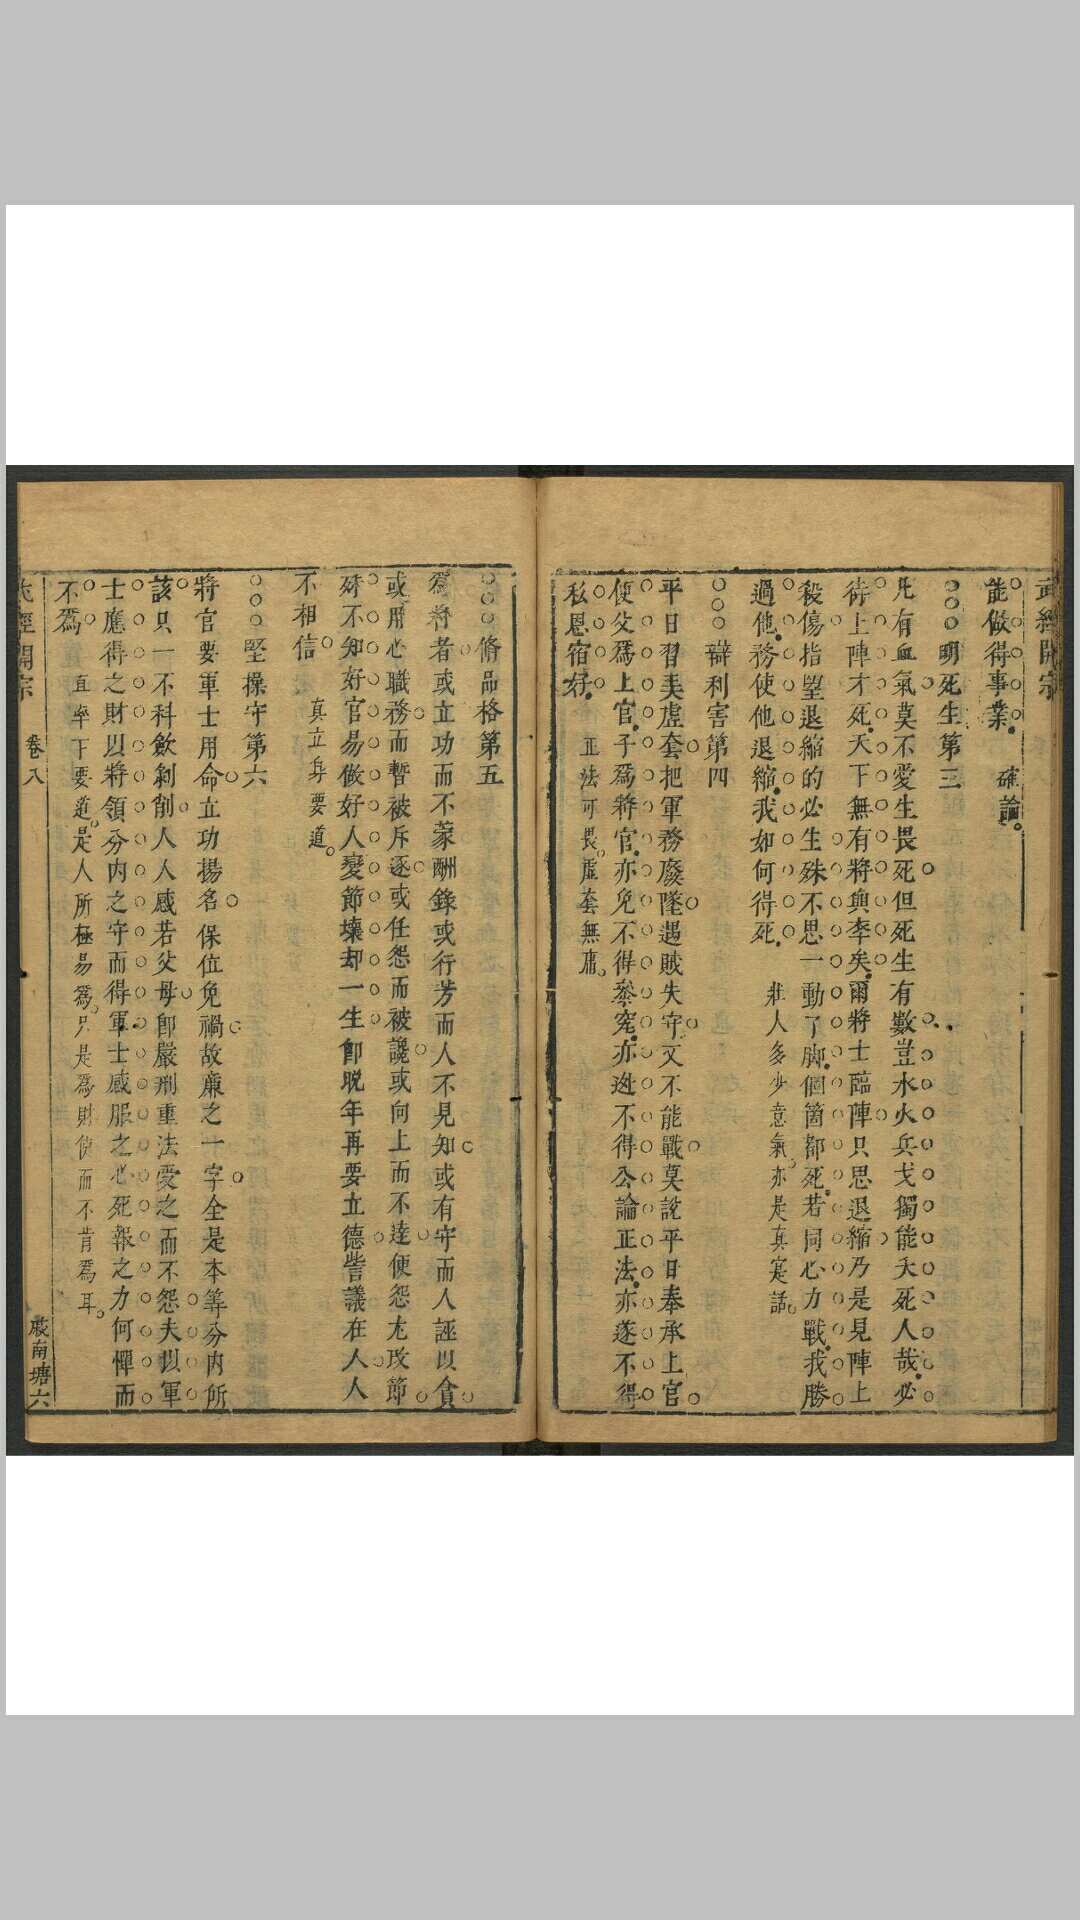 武經開宗
能做得事業 確論
明死生第三
凡有血氣莫不愛生畏死但死生有數豈水火兵戈獨能夭死人哉必
待上陣才死天下無有將與卒矣爾將士臨陣只思退縮乃是見陣上
殺傷指望退縮的必生殊不思一動了脚個箇都死若同心力戰我勝
過他務使他退縮我如何得死 壯人多少意氣亦是真寔話
辯利害第四
平日習美虛套把軍務廢墜遇賊失守又不能戰莫說平日奉承上官
便父爲上官子爲將官亦免不得叅究亦逃不得公論正法亦遂不得
私恩宿好 正法可畏虛套無庸
脩品格第五
爲將者或立功而不蒙酬錄或行芳而人不見知或有守而人誣以貪
或用心職務而暫被斥逐或任怨而被讒或向上而不達便怨尤改節
殊不知好官易做好人變節壞却一生卽晚年再要立德訾議在人人
不相信 真立身要道
堅操守第六
將官要軍士用命立功揚名保位免禍故廉之一字全是本等分內所
該只一不科歛剝削人人感若父母卽嚴刑重法愛之而不怨夫以軍
士應得之財以將領分內之守而得軍士感服之心死報之力何憚而
不爲 直率下要道是人所極易爲只是爲財使而不肯爲耳
武經開宗 卷八 六